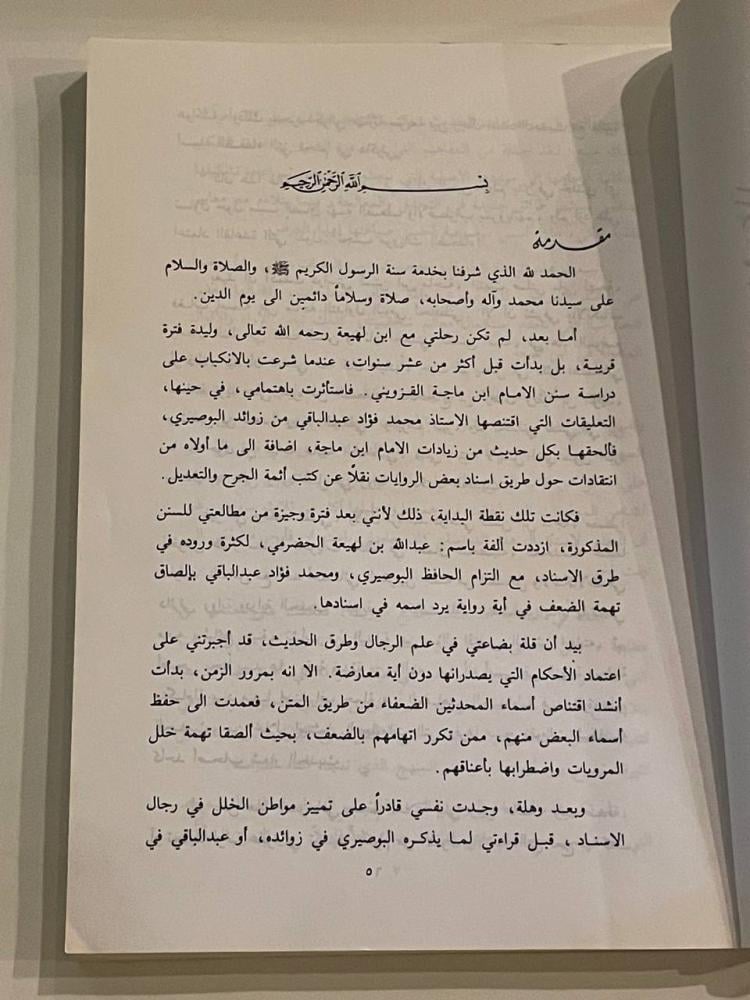 بسم الله الرحمن الرحيم
مقدمة
الحمد لله الذي شرفنا بخدمة سنة الرسول الكريم ﷺ، والصلاة والسلام
على سيدنا محمد وآله وأصحابه، صلاة وسلاماً دائمين الى يوم الدين.
أما بعد، لم تكن رحلتي مع ابن لهيعة رحمه الله تعالى، وليدة فترة
قريبة، بل بدأت قبل أكثر من عشر سنوات، عندما شرعت بالانكباب على
دراسة سنن الامام ابن ماجة القزويني. فاستأثرت باهتمامي، في حينها،
التعليقات التي اقتنصها الاستاذ محمد فؤاد عبدالباقي من زوائد البوصيري،
فألحقها بكل حديث من زيادات الامام ابن ماجة، اضافة الى ما أولاه من
انتقادات حول طريق اسناد بعض الروايات نقلاً عن كتب أئمة الجرح والتعديل.
فكانت تلك نقطة البداية، ذلك لأنني بعد فترة وجيزة من مطالعتي للسنن
المذكورة، ازددت ألفة باسم: عبدالله بن لهيعة الحضرمي، لكثرة وروده في
طرق الاسناد، مع التزام الحافظ البوصيري، ومحمد فؤاد عبدالباقي بإلصاق
تهمة الضعف في أية رواية يرد اسمه في اسنادها.
بيد أن قلة بضاعتي في علم الرجال وطرق الحديث، قد أجبرتني على
اعتماد الأحكام التي يصدرانها دون أية معارضة. الا انه بمرور الزمن، بدأت
أنشد اقتناص أسماء المحدثين الضعفاء من طريق المتن، فعمدت الى حفظ
أسماء البعض منهم، ممن تكرر اتهامهم بالضعف، بحيث ألصقا تهمة خلل
المرويات واضطرابها بأعناقهم.
وبعد وهلة، وجدت نفسي قادراً على تمييز مواطن الخلل في رجال
الاسناد، قبل قراءتي لما يذكره البوصيري في زوائده، أو عبدالباقي في
٥